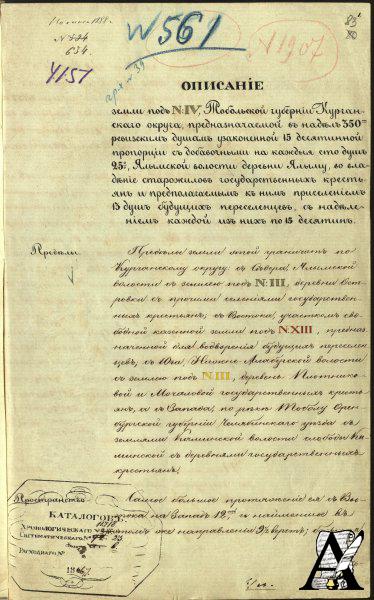 N 561
N 1907
634.
4151
ОПИСАНІЕ
земли подъ N:IV, Тобольской губерніи Курган-
скаго округа, предназначаемой въ надѣлъ 350ти
ревизскимъ душамъ узаконенной 15 десятинной
пропорціи съ добавочными на каждыя сто душъ
25ю, Ялымской волости деревни Ялыму, во вла-
дѣніе старожиловъ государственныхъ кресть-
янъ и предполагаемымъ къ нимъ приселеніемъ
15 душъ будущихъ переселенцевъ, съ надѣле-
ніемъ каждой изъ нихъ по 15 десятинъ.
Предѣлы.
Предѣлы земли этой граничатъ по
Курганскому округу: съ Сѣвера, Ялымской
волости съ землею подъ N:III, деревни Ост-
ровки съ прочими селеніями государствен-
ныхъ крестьянъ; съ Востока, участкомъ сво-
бодной казенной земли подъ N:XIII, предназ-
наченной для водворенія будущихъ переселен-
цевъ; съ Юга, Нижне Алабугской волости
съ землею подъ N:III, деревень Плотников-
ой и Мочаловой государственныхъ кресть-
янъ, а съ Запада, по рѣкѣ Тоболу Орен-
бургской губерніи Челябинскаго уѣзда съ
землями Каминской волости слободы Ка-
минской съ деревнями государственныхъ
крестьянъ.
Пространство.
Самое большое протяженіе ея съ Вос-
тока на Западъ 12ть и наименьшее въ
томъ же направленіи 9½ верстъ;
КАТАЛОГОВЪ
Хронологическаго №
Систематическаго №
Расходнаго №
А